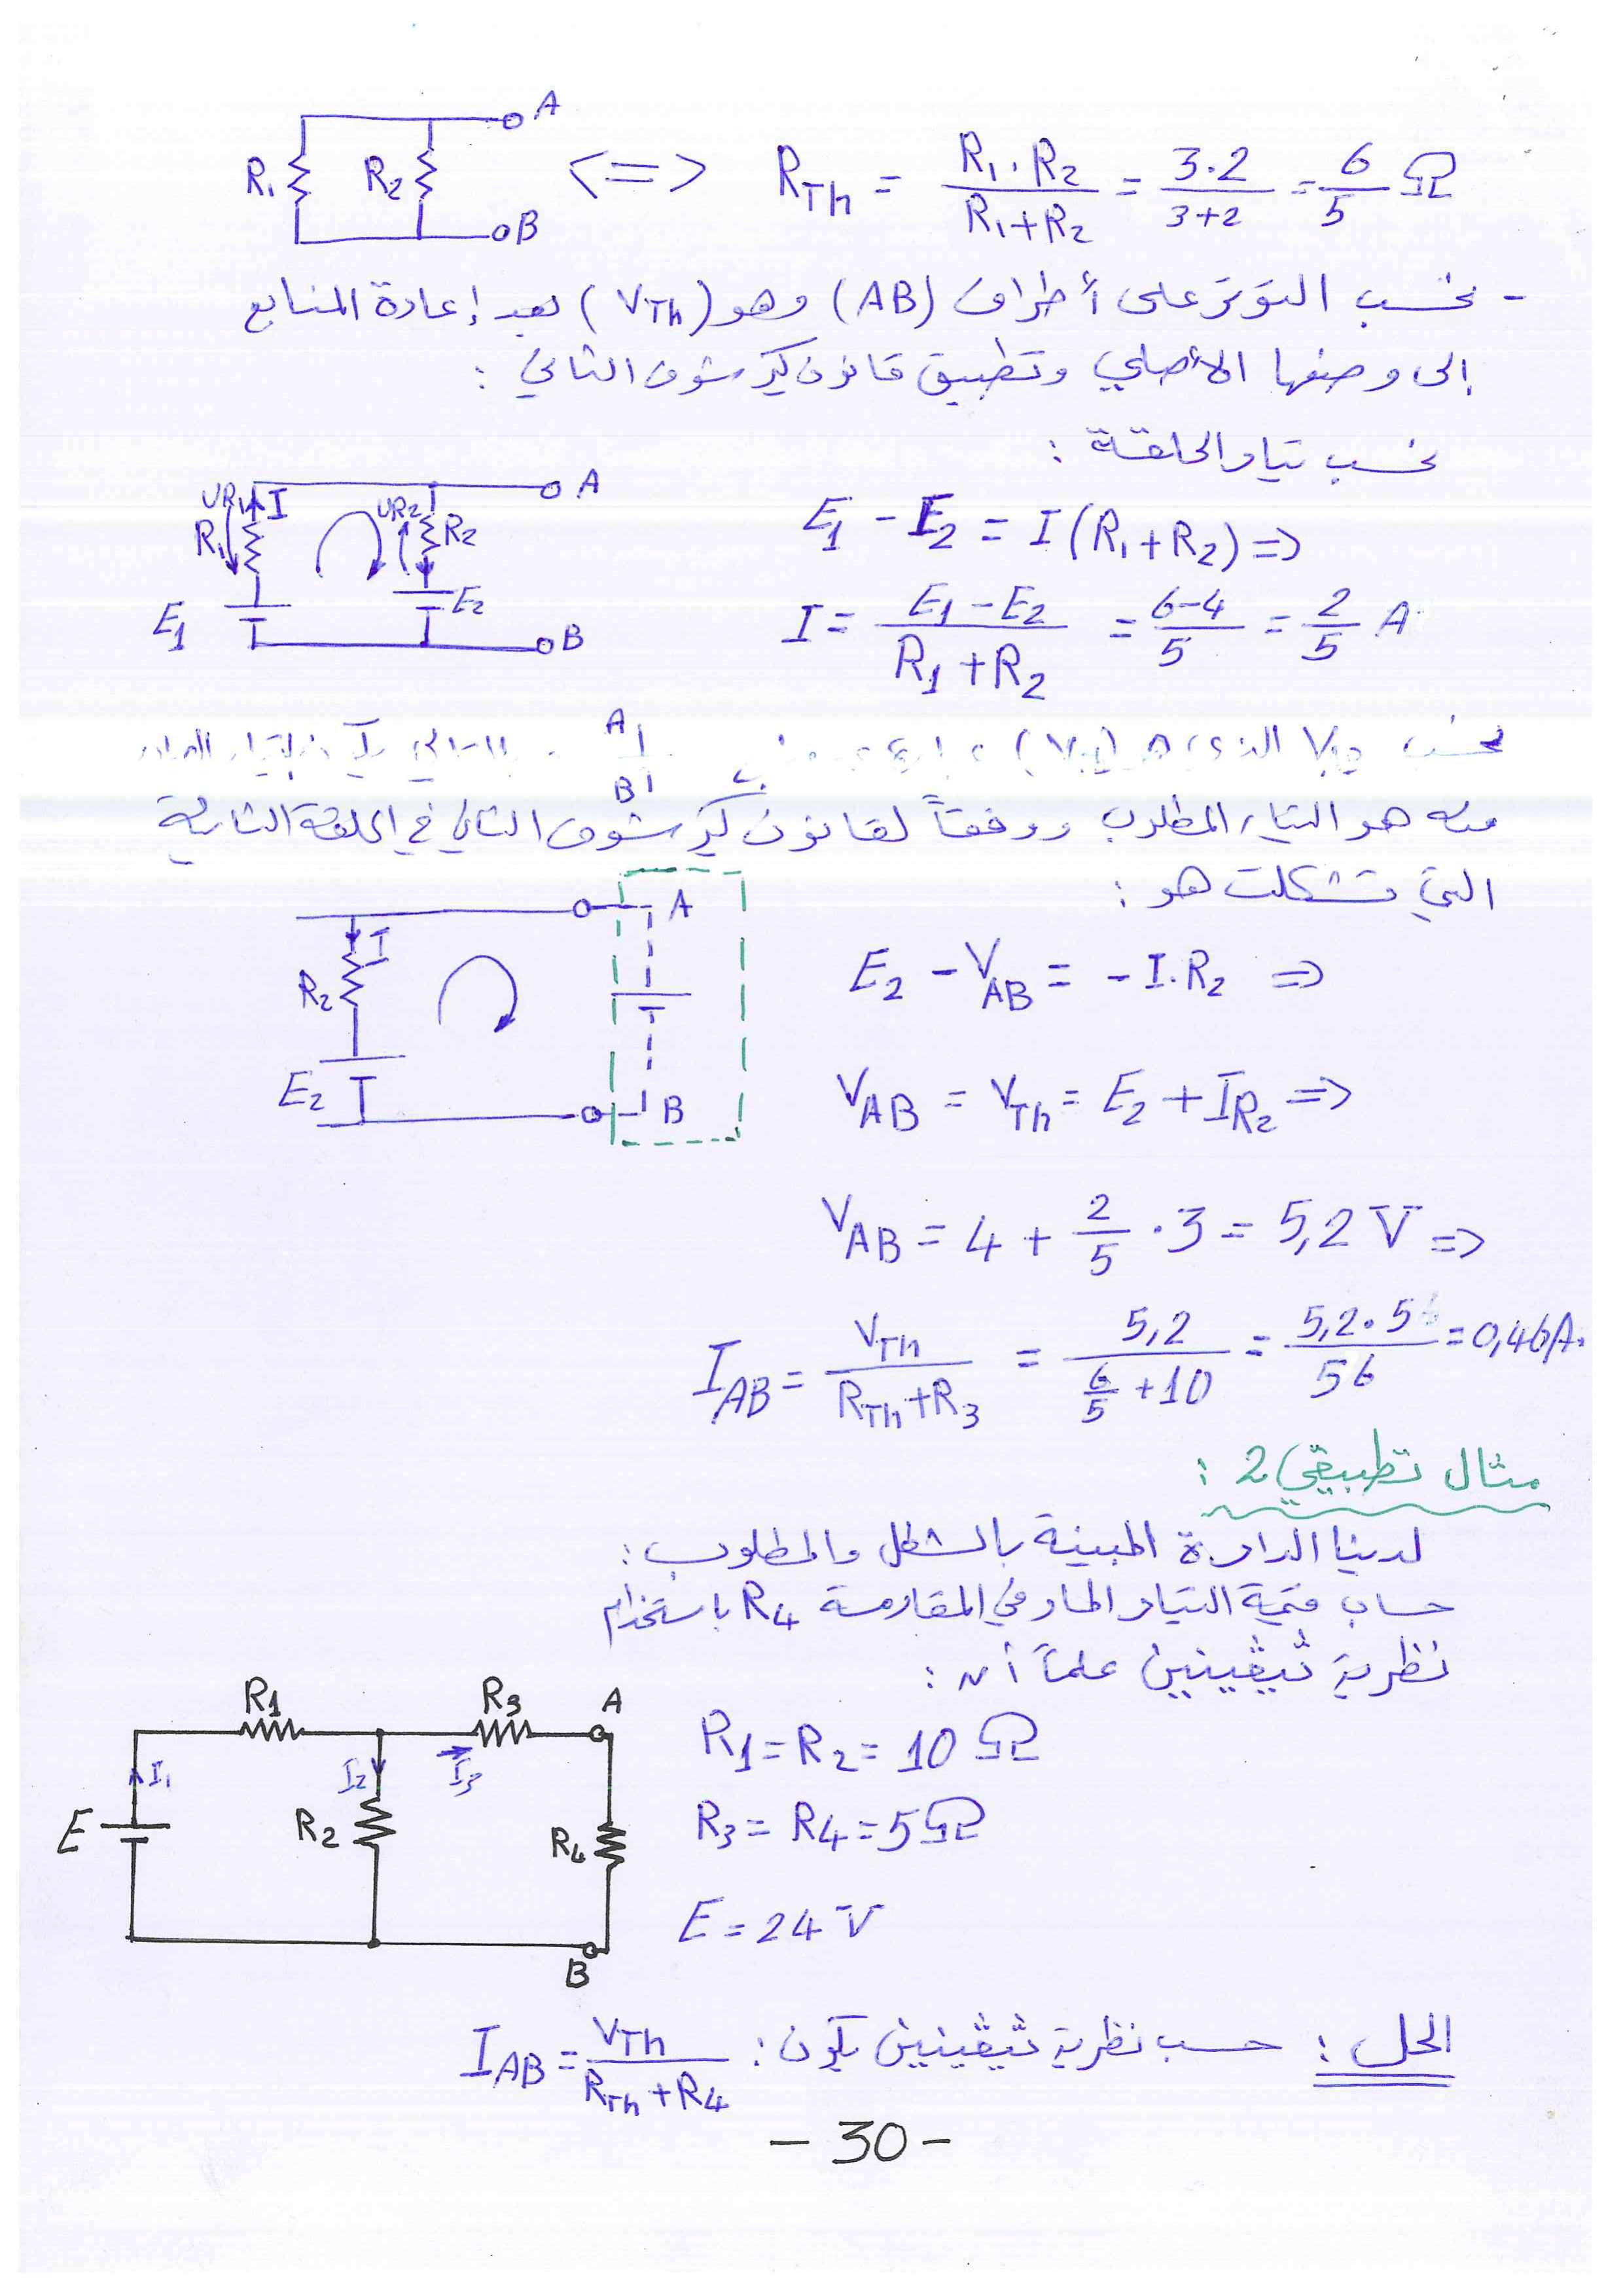 A
R1 R2 <=> RTh = R1.R2 / R1+R2 = 3.2 / 3+2 = 6/5 Ω
B
- نحسب التوتر على أطراف (AB) وهو (VTh) بعد إعادة المنابع
إلى وضعها الأصلي وتطبيق قانون كيرشوف الثاني :
نحسب تيار الحلقة :
UR1 I UR2 A
R1 R2
E1 - E2 = I(R1+R2) =>
E1 E2 B
I = E1-E2 / R1+R2 = 6-4 / 5 = 2/5 A
نحسب الذي
A
B
منه هو التيار المطلوب ووفقاً لقانون كيرشوف الثاني في الحلقة الثانية
التي تشكلت هو :
A
I
R2
E2 - VAB = -I.R2 =>
E2 B
VAB = VTh = E2 + IR2 =>
VAB = 4 + 2/5 . 3 = 5,2 V =>
IAB = VTh / RTh+R3 = 5,2 / 6/5 +10 = 5,2.5 / 56 = 0,46A.
مثال تطبيقي 2 :
لدينا الدارة المبينة بالشكل والمطلوب :
حساب قيمة التيار المار في المقاومة R4 باستخدام
نظرية ثيڤينين علماً أن :
R1 R3 A
R1 = R2 = 10 Ω
I1 I2 I3
E R2 R4
R3 = R4 = 5Ω
E = 24 V
B
الحل : حسب نظرية ثيڤينين يكون : IAB = VTh / RTh+R4
- 30 -